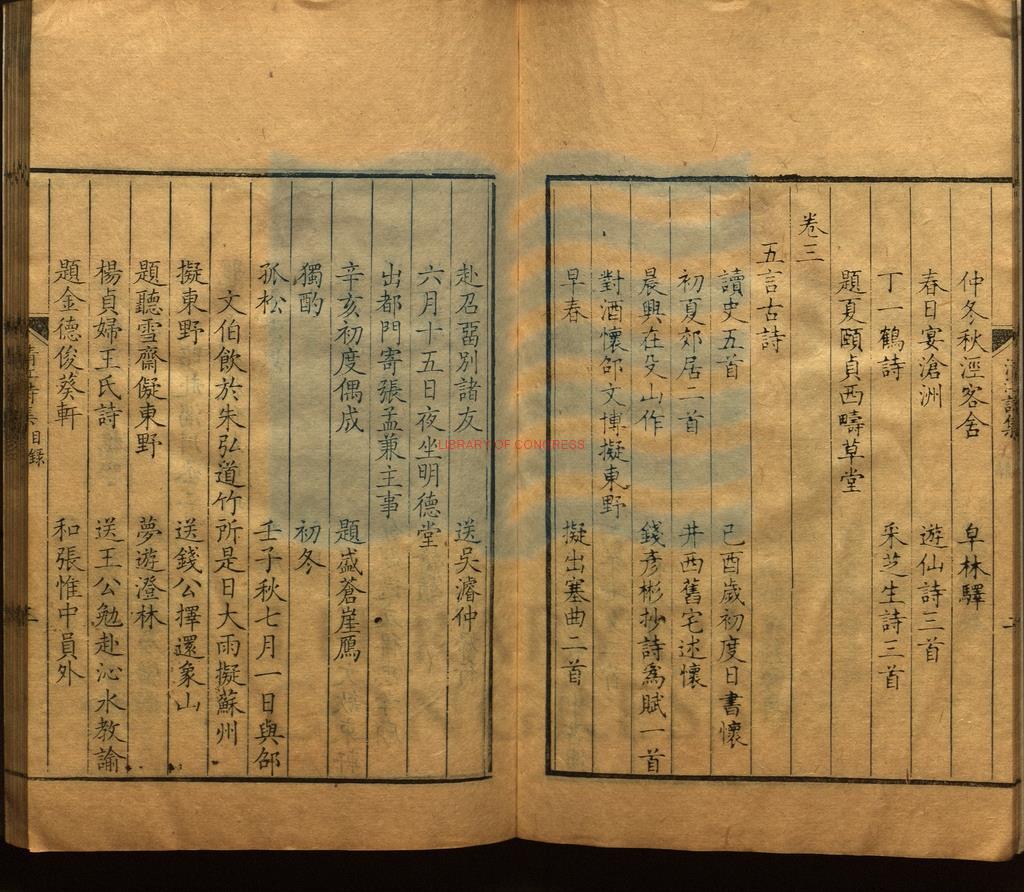 仲冬秋涇客舍　皁林驛
春日宴滄洲　遊仙詩三首
丁一鶴詩　采芝生詩二首
題夏頤貞西疇草堂
卷三
五言古詩
讀史五首　己酉歲初度日書懷
初夏郊居二首　井西舊宅述懷
晨興在殳山作　錢彥彬抄詩爲賦一首
對酒懷邵文博擬東野
早春　擬出塞曲二首
赴召畱別諸友　送吳濬仲
六月十五日夜坐明德堂
出都門寄張孟兼主事
辛亥初度偶成　題盛蒼崖鴈
獨酌　初冬
孤松　壬子秋七月一日與邵
文伯飲於朱弘道竹所是日大雨擬蘇州
擬東野　送錢公擇還象山
題聽雪齋儗東野　夢遊澄林
楊貞婦王氏詩　送王公勉赴沁水教諭
題金德俊葵軒　和張惟中員外
詩集目録
LIBRARY OF CONGRESS